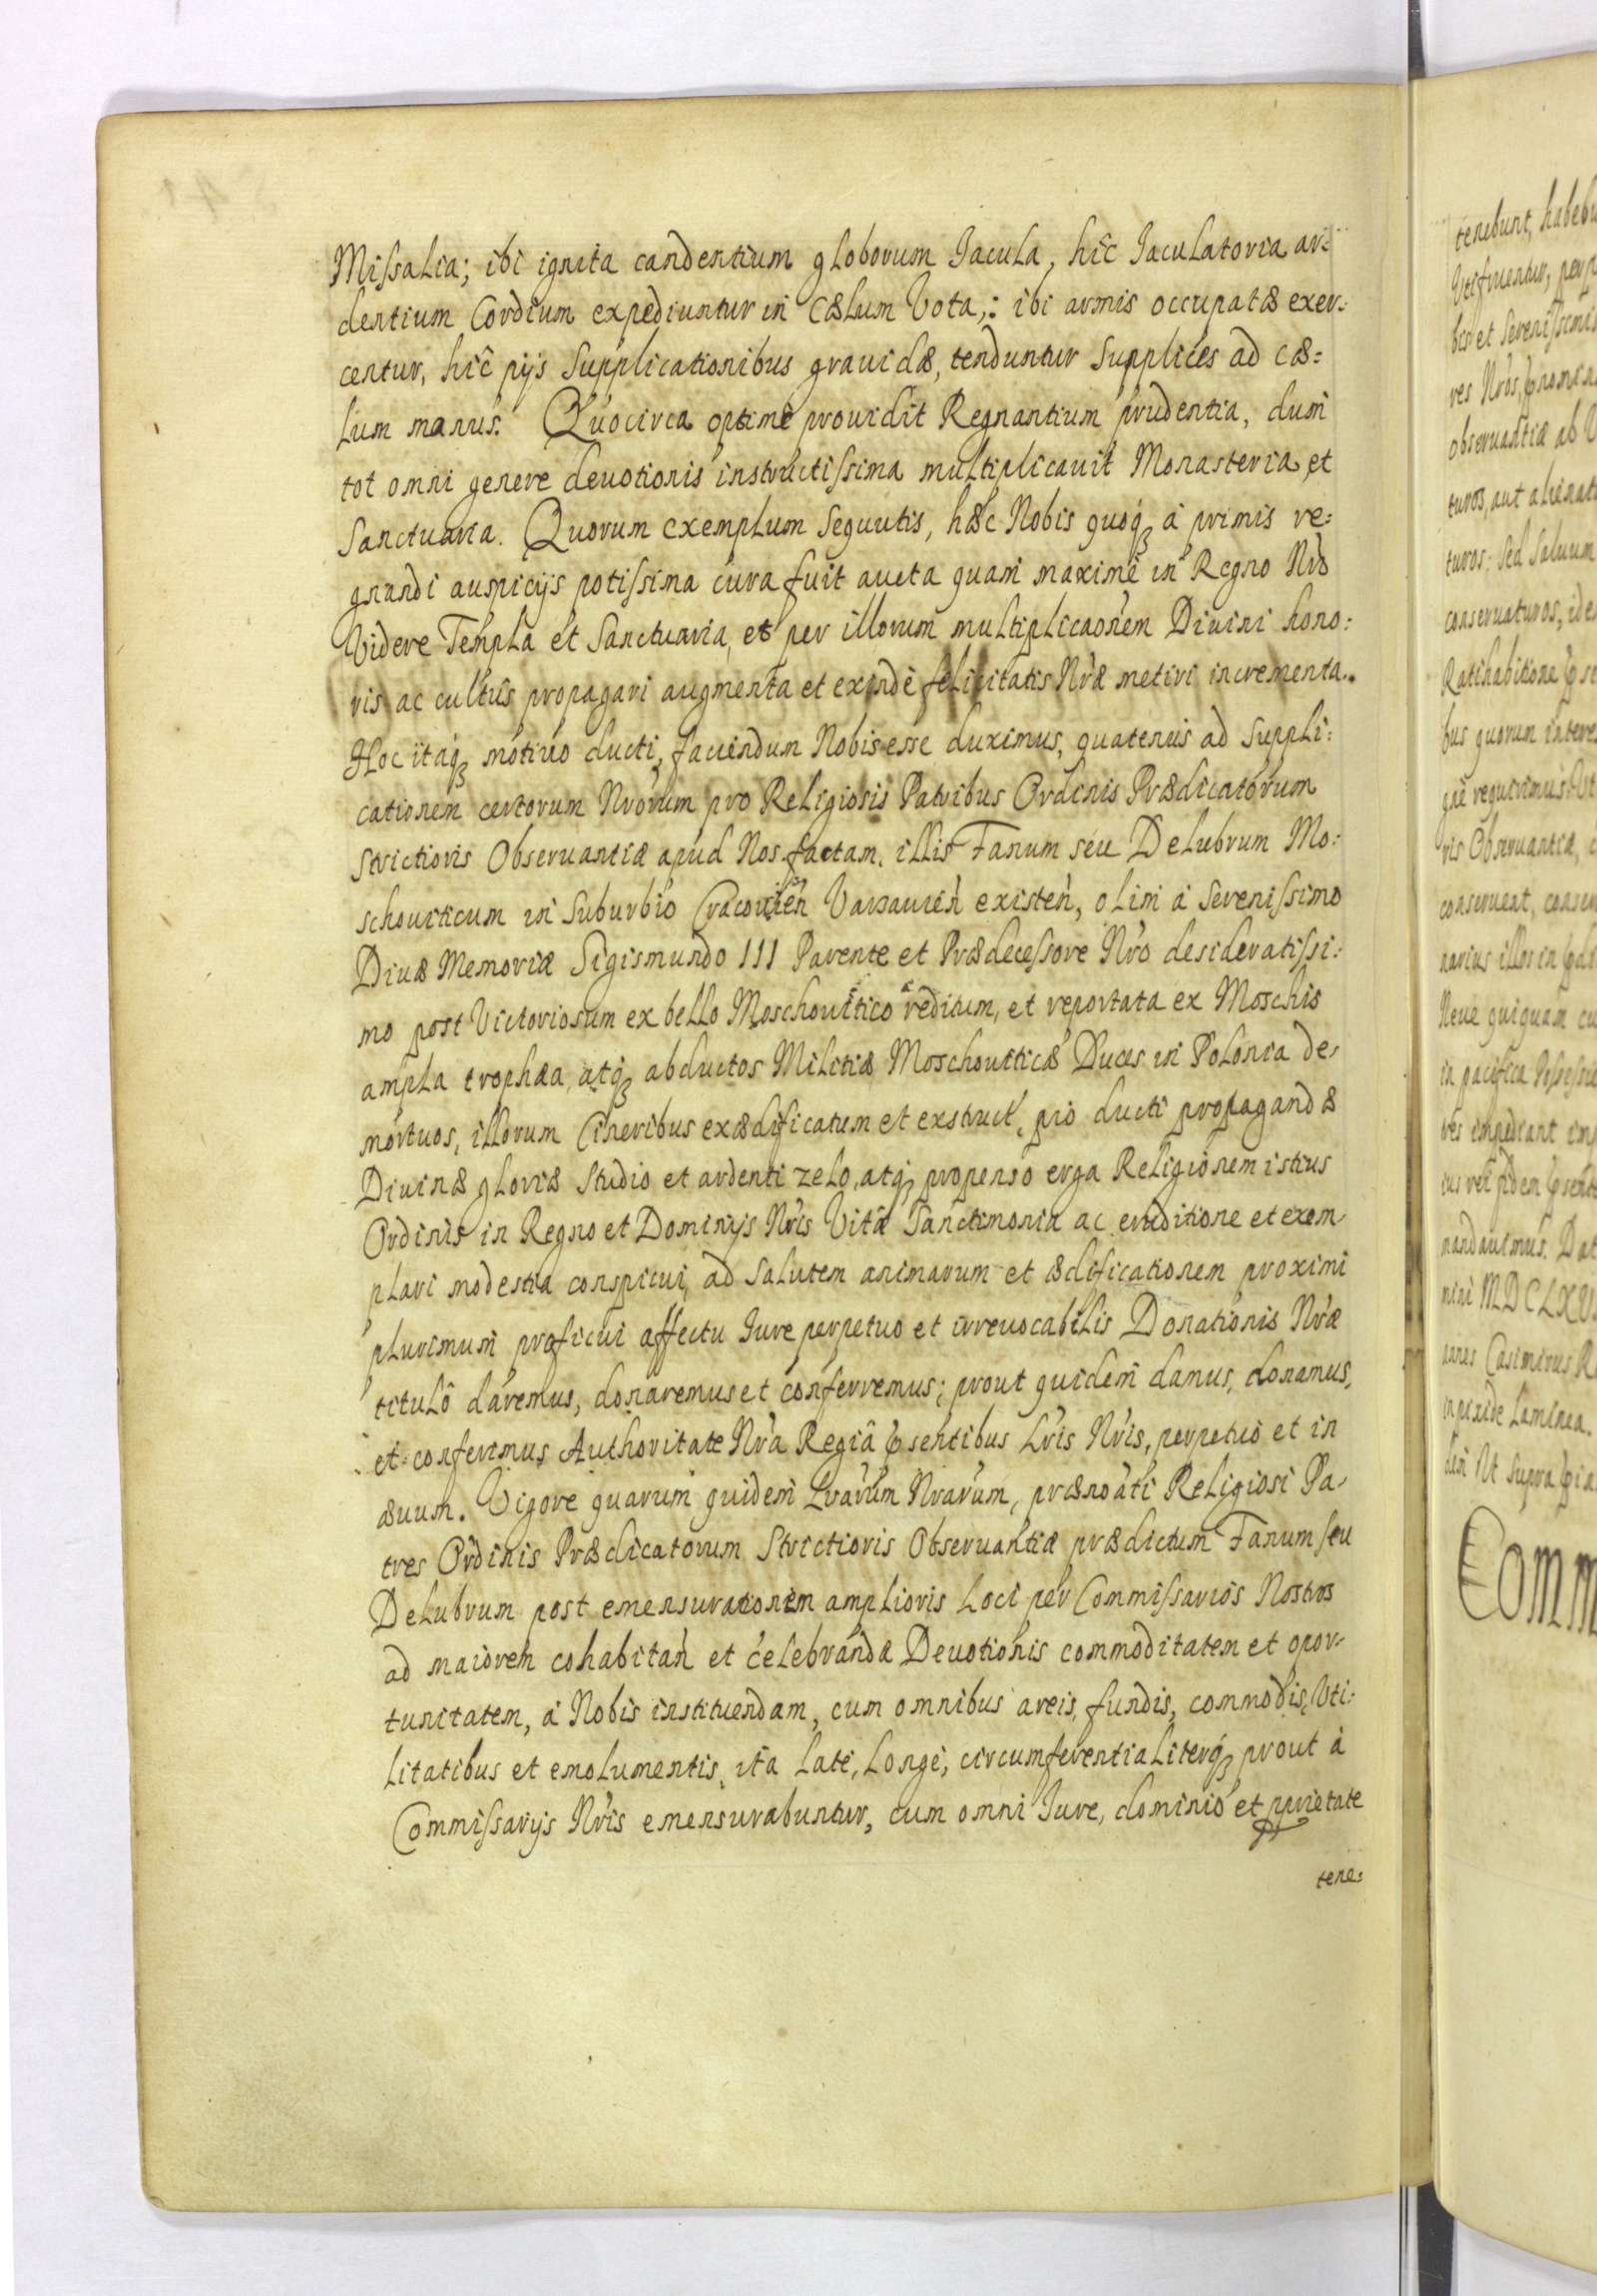 Missalia; ibi ignita candentium globorum Iacula, hîc Iaculatoria ar=
dentium Cordium expediuntur in Cælum Vota,: ibi armis occupatæ exer=
centur, hîc pijs Supplicationibus grauidæ, tenduntur Supplices ad Cæ=
lum manus. Quocirca optimè prouidit Regnantium prudentia, dum
tot omni genere deuotionis instructissima multiplicauit Monasteria et
Sanctuaria. Quorum exemplum Seguutis, hæc Nobis quoq̃ à primis re=
gnandi auspicijs potissima cura fuit aucta quam maximè in Regno Nrõ
Videre Templa et Sanctuaria, et per illorum multiplicaonem Diuini hono=
ris ac cultûs propagari augmenta et exindè felicitatis Nræ metiri incrementa.
Hoc itaq̃ motiuo ducti, faciendum Nobis esse duximus, quatenus ad Suppli=
cationem certorum Nrorum pro Religiosis Patribus Ordinis Prædicatorum
Strictioris Obseruantiæ apud Nos factam, illis Fanum seu Delubrum Mo=
schouiticum in Suburbio Cracouień Varsauień existeń, olim à Serenissimo
Diuæ Memoriæ Sigismundo III Parente et Prædecessore Nrõ desideratissi=
mo post Victoriosum ex bello Moschouitico reditum, et reportata ex Moschis
ampla trophæa, atq̃ abductos Militiæ Moschouiticæ Duces in Polonia de=
mortuos, illorum Cineribus exædificatum et exstruct, pio ducti propagandæ
Diuinæ gloriæ Studio et ardenti zelo, atq̃ propenso erga Religionem istius
Ordinis in Regno et Dominijs Nris Vitâ Sanctimonia ac eruditione et exem=
plari modestia conspicui, ad Salutem animarum et ædificationem proximi
plurimum proficui affectu Iure perpetuo et irreuocabilis Donationis Nræ
titulô daremus, donaremus et conferremus; prout quidem damus, donamus,
et conferimus Authoritate Nrã Regiâ p̃sentibus Lris Nris, perpetuò et in
æuum. Vigore quarum quidem Lrarum Nrarum, prænoati Religiosi Pa=
tres Ordinis Prædicatorum Strictioris Obseruantiæ prædictum Fanum seu
Delubrum post emensurationem amplioris Loci per Commissarios Nostros
ad maiorem cohabitań et celebrandæ Deuotionis commoditatem et opor=
tunitatem, à Nobis instituendam, cum omnibus areis, fundis, commodis, Vti=
litatibus et emolumentis, ita Latè, Longè, circumferentialiterq̃ prout à
Commissarijs Nris emensurabuntur, cum omni Iure, dominio et pprietate
tene=
tenebunt, habebu
Vtifruentur, perp
et Serenissimis
res Nros,
obseruantiæ ab
turos, aut alienat
turos; Sed Saluum
conseruaturos,
Ratihabitione
bus quorum intere
requirimus Vt
ris Obseruantiæ,
conseruent,
narius illos in
Neue quiquam
in pacifica Possessio
impediant
ius rei fidem p̃sent
mandauimus. Dat
MDCLX
Casimirus R
Laminea.
Vt Supra
Comm